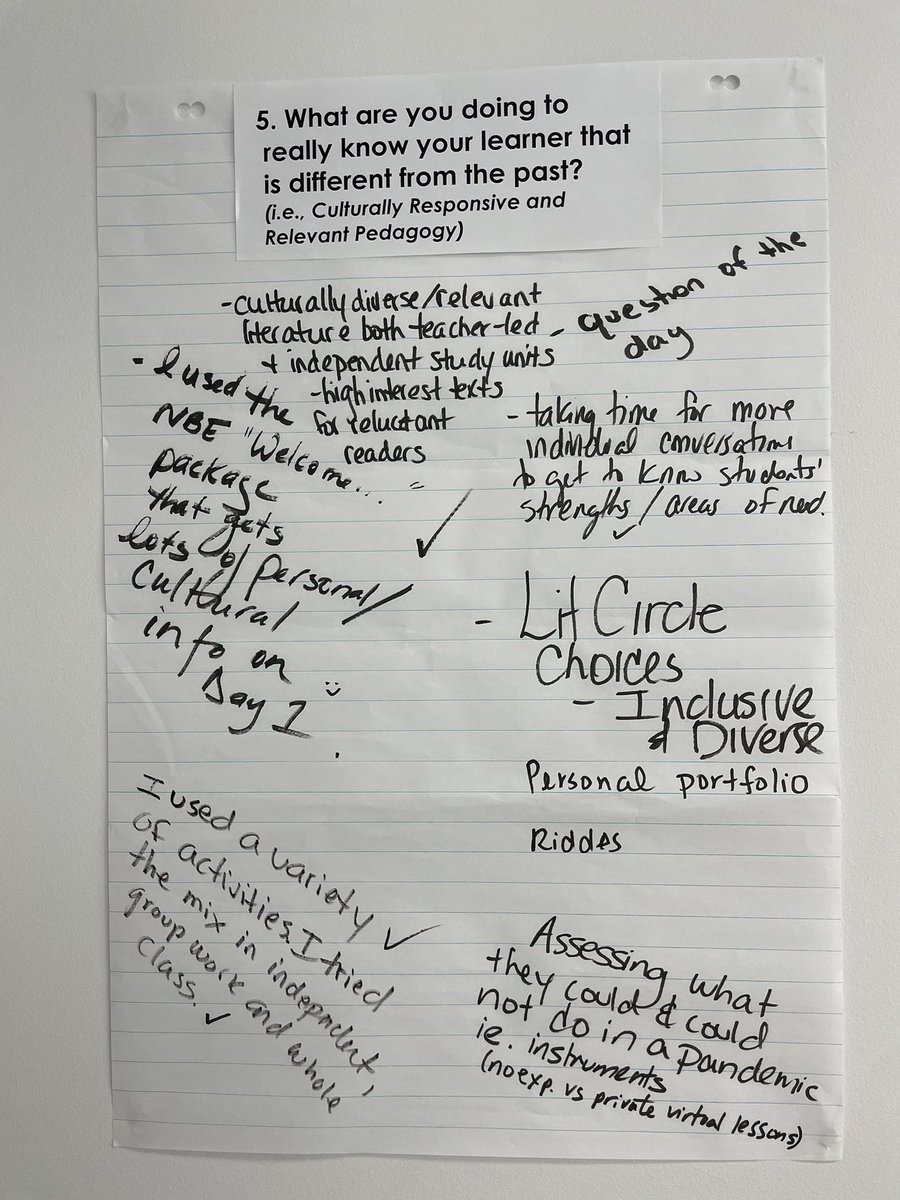 5. What are you doing to
really know your learner that
is different from the past?
(i.e., Culturally Responsive and
Relevant Pedagogy)
-culturally diverse/relevant
literature both teacher-led
+ independent study units
-high interest texts
for reluctant
readers
- question of the
day
- I used the
NBE "Welcome... "
package
that gets
lots of personal/
Cultural
info on
Day 1
- taking time for more
individual conversations
to get to know students'
strengths/areas of need.
- Lit Circle
Choices
- Inclusive
& Diverse
Personal portfolio
Riddes
I used a variety
of activities. I tried
the mix in independent,
group work and whole
class.
Assessing what
they could & could
not do in a pandemic
ie. instruments
(no exp. vs private virtual lessons)